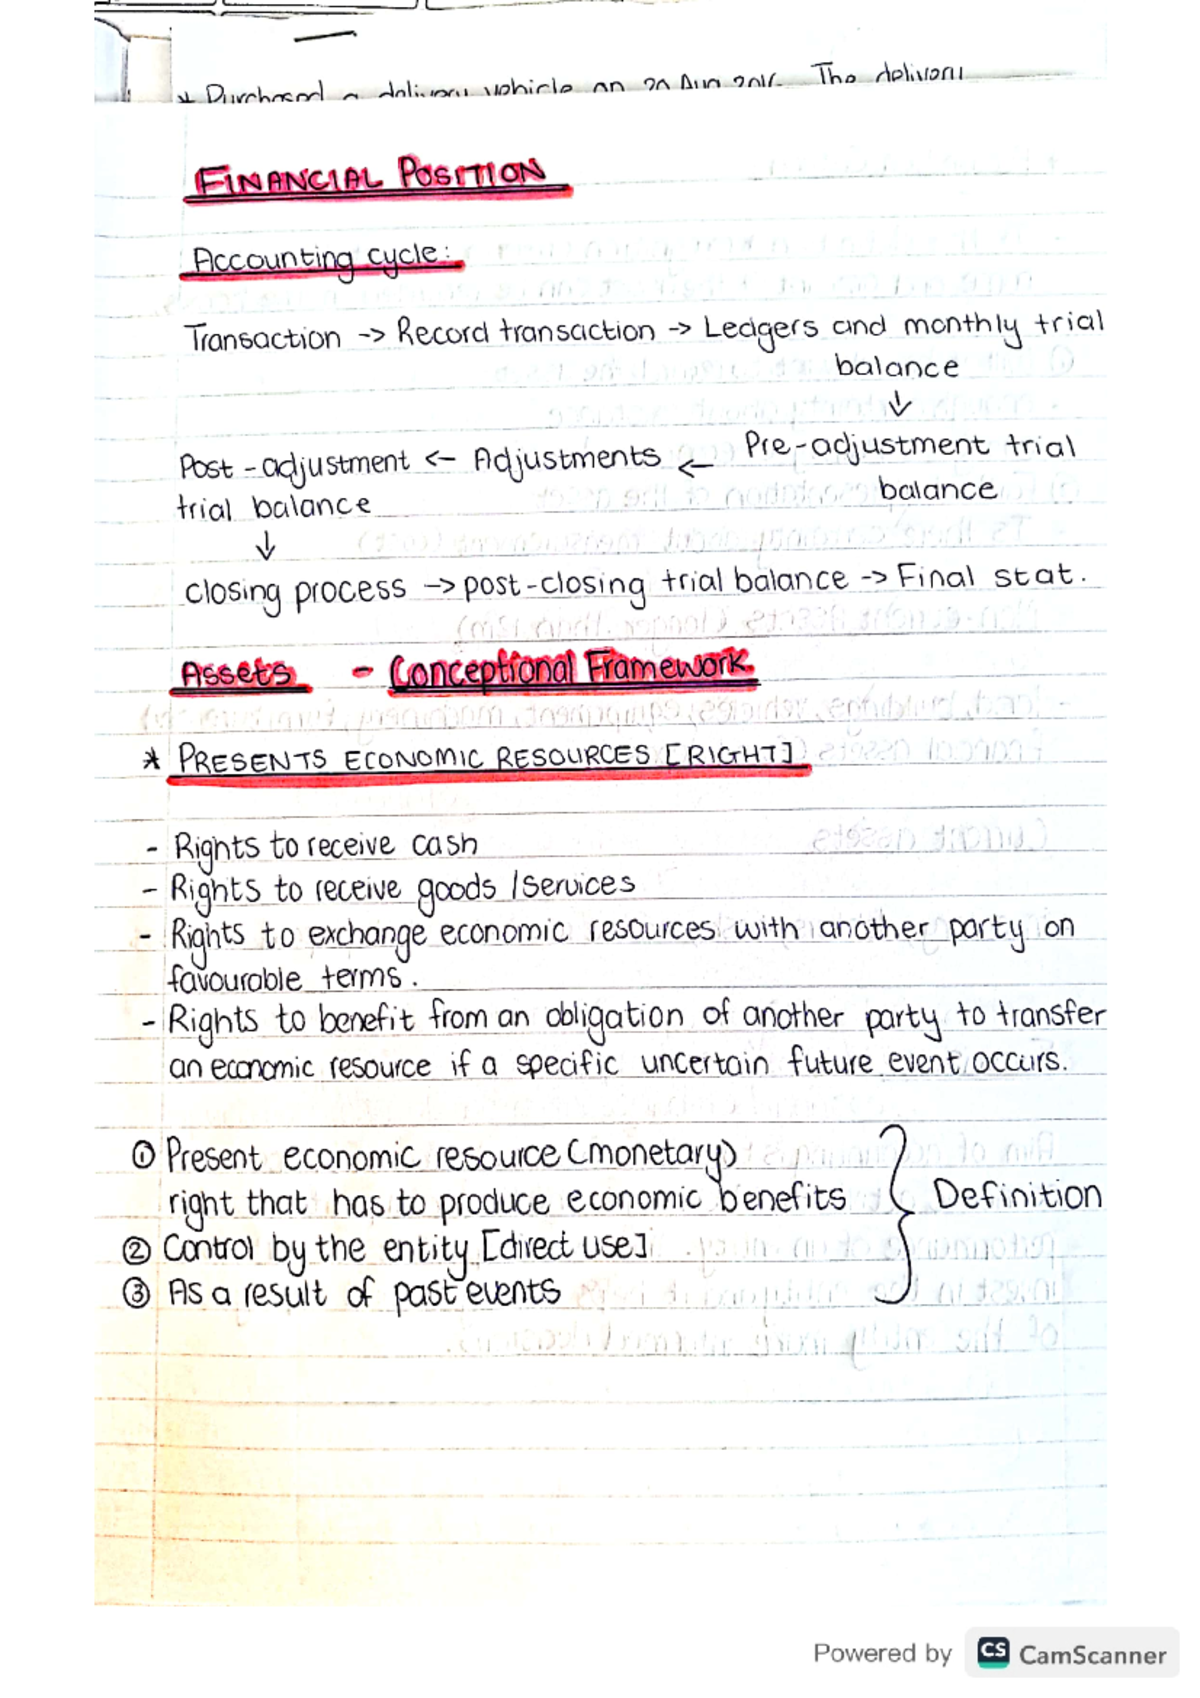 * Purchased a delivery vehicle on 20 Aug The delivery
FINANCIAL POSITION
Accounting cycle:
Transaction -> Record transaction -> Ledgers and monthly trial
balance
↓
Post-adjustment <- Adjustments <- Pre-adjustment trial
trial balance balance
↓
closing process -> post-closing trial balance -> Final stat.
Assets - Conceptional Framework
* PRESENTS ECONOMIC RESOURCES [RIGHT]
- Rights to receive cash
- Rights to receive goods /services
- Rights to exchange economic resources with another party on
favourable terms.
- Rights to benefit from an obligation of another party to transfer
an economic resource if a specific uncertain future event occurs.
① Present economic resource (monetary)
right that has to produce economic benefits } Definition
② Control by the entity [direct use]
③ As a result of past events
Powered by CS CamScanner